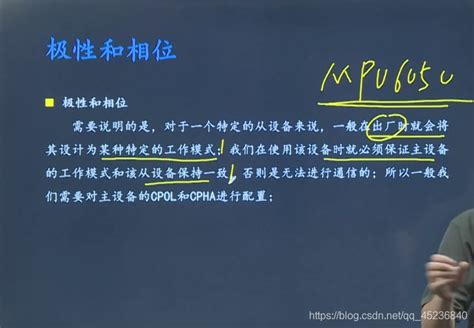 极性和相位
MPU6050
极性和相位
需要说明的是，对于一个特定的从设备来说，一般在出厂时就会将
其设计为某种特定的工作模式；我们在使用该设备时就必须保证主设备
的工作模式和该从设备保持一致，否则是无法进行通信的；所以一般我
们需要对主设备的CPOL和CPHA进行配置；
https://blog.csdn.net/qq_45236840